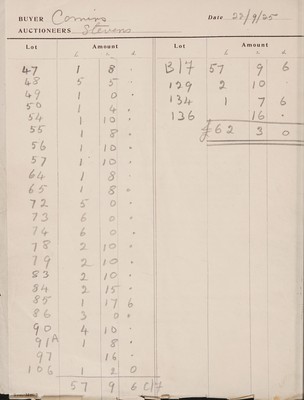 BUYER Comins Date 22/9/25
AUCTIONEERS Stevens
Lot Amount Lot Amount
£ s. d. £ s. d.
47 1 8 .
48 5 5 .
49 1 0 .
50 1 4 .
54 1 10 .
55 1 8 .
56 1 10 .
57 1 10 .
64 1 8 .
65 1 8 .
72 5 0 .
73 6 0 .
74 6 0 .
78 2 10 .
79 2 10 .
83 2 10 .
84 2 15 .
85 1 17 6
86 3 0 .
90 4 10 .
91A 1 8 .
97 16 .
106 1 2 0
57 9 6 C/7
B/7 57 9 6
129 2 10 .
134 1 7 6
136 16 .
£62 3 0